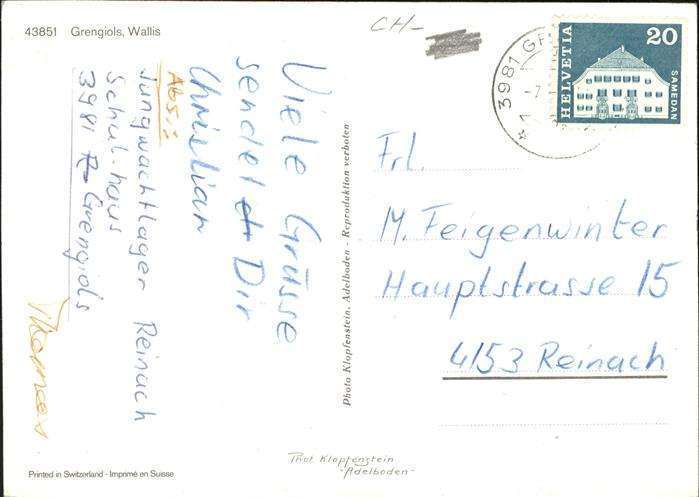 43851 Grengiols, Wallis
CH-
3981 GR
-7.
1
HELVETIA
20
SAMEDAN
Viele Grüsse
sendet Dir
Christian
Abs.:
Jungwachtlager Reinach
Schul-haus
3981 Grengiols
Thomas
Photo Klopfenstein, Adelboden - Reproduktion verboten
Frl.
M. Feigenwinter
Hauptstrasse 15
4153 Reinach
Phot Klopfenstein
-Adelboden-
Printed in Switzerland - Imprimé en Suisse